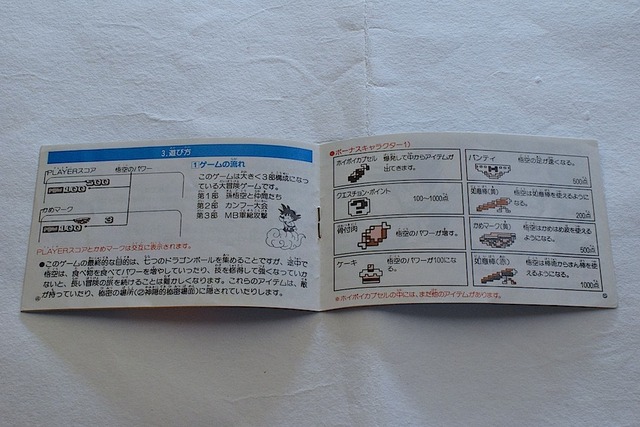 3.遊び方
PLAYERスコア 悟空のパワー
500
POW 100
かめマーク
3
POW 100
PLAYERスコアとかめマークは交互に表示されます。
1 ゲームの流れ
このゲームは大きく3部構成になっ
ている大冒険ゲームです。
第1部 孫悟空と仲間たち
第2部 カンフー大会
第3部 MB軍総攻撃
●このゲームの最終的な目的は、七つのドラゴンボールを集めることですが、途中で
悟空は、食べ物を食べてパワーを増やしていったり、技を修得して強くなっていか
ないと、長い冒険の旅を続けることは難かしくなります。これらのアイテムは、敵
が持っていたり、秘密の場所(②神隠的秘密場面)に隠されていたりします。
ボーナスキャラクター1)
ホイポイカプセル 爆発して中からアイテムが
出てきます。
クエスチョン・ポイント
100〜1000点
骨付肉
悟空のパワーが増す。
ケーキ 悟空のパワーが100にな
る。
パンティ 悟空の足が速くなる。
500点
如意棒(黄) 悟空は如意棒を使えるように
なる。
200点
かめマーク(黄) 悟空はかめはめ波を使える
ようになる。
500点
如意棒(赤) 悟空は棒術からまん棒を使
えるようになる。
1000点
※ホイポイカプセルの中には、まだ他のアイテムがあります。